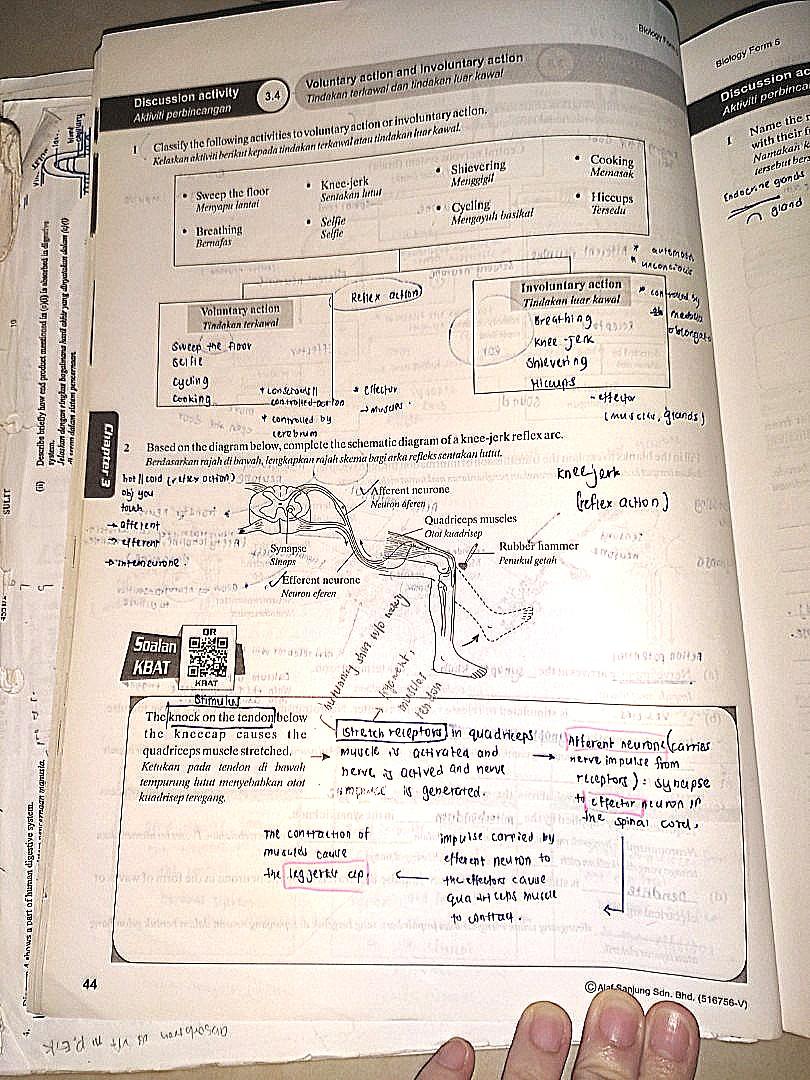 Biology Form
Discussion activity
Aktiviti perbincangan
3.4
Voluntary action and involuntary action
Tindakan terkawal dan tindakan luar kawal
1 Classify the following activities to voluntary action or involuntary action.
Kelaskan aktiviti berikut kepada tindakan terkawal atau tindakan luar kawal.
• Sweep the floor
Menyapu lantai
• Knee-jerk
Sentakan lutut
• Shievering
Menggigil
• Cooking
Memasak
• Breathing
Bernafas
• Selfie
Selfie
• Cycling
Mengayuh basikal
• Hiccups
Tersedu
Reflex action
Voluntary action
Tindakan terkawal
Sweep the floor
Selfie
Cycling
Cooking
controlled action
* controlled by
cerebrum
* effector
→ muscles
Involuntary action
Tindakan luar kawal
Breathing
Knee-jerk
Shievering
Hiccups
* unconscious
* controlled by
medulla
oblongata
- effector
(muscles, glands)
Chapter 3
2 Based on the diagram below, complete the schematic diagram of a knee-jerk reflex arc.
Berdasarkan rajah di bawah, lengkapkan rajah skema bagi arka refleks sentakan lutut.
hot/cold (reflex action)
obj you
touch
→ afferent
→ efferent
→ interneurone.
Knee jerk
(reflex action)
Afferent neurone
Neuron aferen
Quadriceps muscles
Otot kuadrisep
Synapse
Sinaps
Rubber hammer
Penukul getah
Efferent neurone
Neuron eferen
ligament,
muscles
tendon
Soalan
KBAT
QR
KBAT
Stimulus
The knock on the tendon below
the kneecap causes the
quadriceps muscle stretched.
Ketukan pada tendon di bawah
tempurung lutut menyebabkan otot
kuadrisep teregang.
stretch receptors in quadriceps
muscle is activated and
nerve is actived and nerve
impulse is generated.
Afferent neurone (carries
nerve impulse from
receptors) : synapse
to effector neuron in
the spinal cord.
impulse carried by
efferent neuron to
the effectors cause
quadriceps muscle
to contract.
The contraction of
muscles cause
the leg jerks up.
44
© Alaf Sanjung Sdn. Bhd. (516756-V)
Biology Form 5
Discussion ac
Aktiviti perbinca
1 Name the
with their f
Namakan k
tersebut ber
Endocrine glands
gland
SULIT
(ii) Describe briefly how end product mentioned in (c)(i) is absorbed in digestive
system.
shows a part of human digestive system.